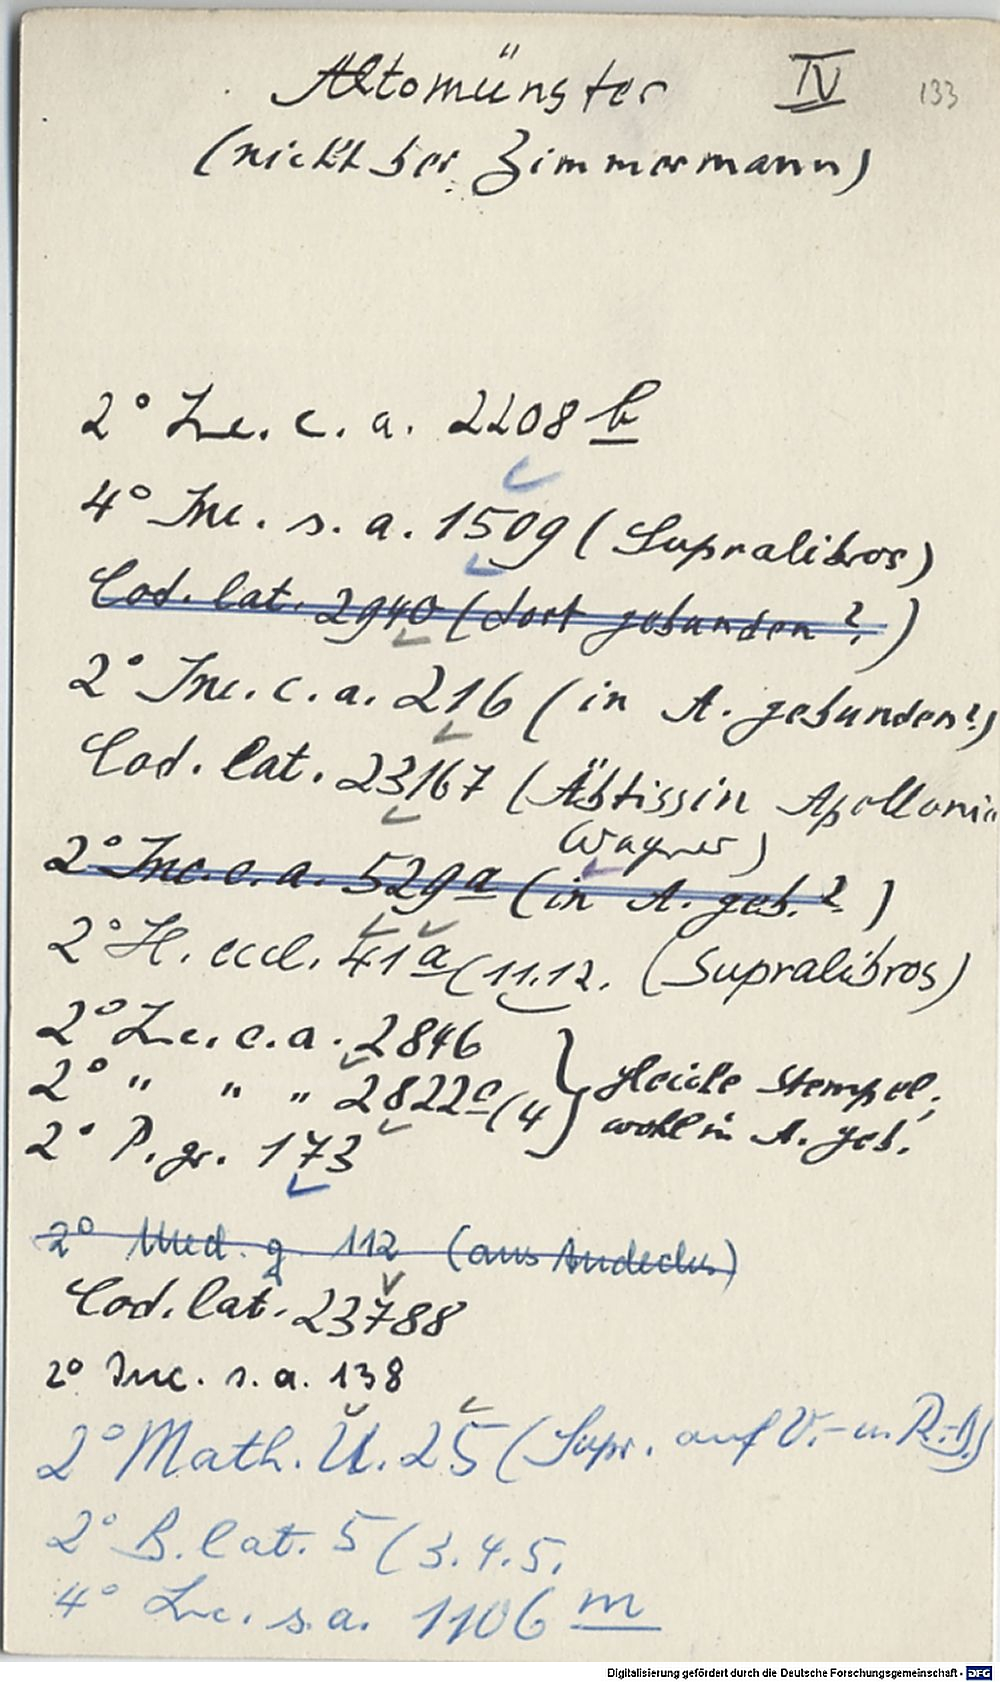 Altomünster IV 133
(nicht bei Zimmermann)
2° Inc. c. a. 2208 b
4° Inc. s. a. 1509 (Supralibros)
Cod. lat. 2940 (dort gebunden?)
2° Inc. c. a. 216 (in A. gebunden?)
Cod. lat. 23167 (Äbtissin Apollonia
Wagner)
2° Inc. c. a. 529 a (in A. geb.?)
2° H. eccl. 41 a (11.12. (Supralibros)
2° Inc. c. a. 2846
2° " " " 2822 c (4 } gleiche Stempel,
2° P. gr. 173 wohl in A. geb.
2° Med. g. 112 (aus Andechs)
Cod. lat. 23788
2° Inc. s. a. 138
2° Math. U. 25 (Supr. auf V.- u. R.-D.)
2° B. lat. 5 (3.4.5.
4° Inc. s. a. 1106 m
Digitalisierung gefördert durch die Deutsche Forschungsgemeinschaft - DFG